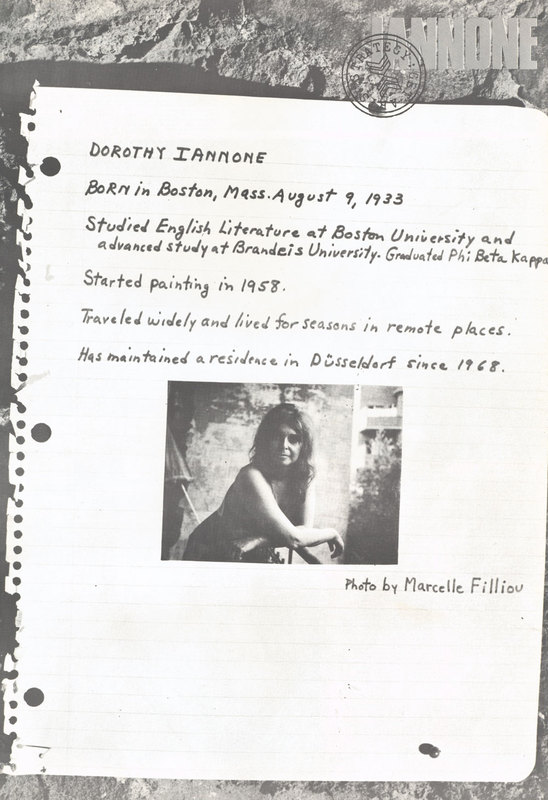 IANNONE
DOROTHY IANNONE
BORN in Boston, Mass. August 9, 1933
Studied English Literature at Boston University and
advanced study at Brandeis University. Graduated Phi Beta Kappa
Started painting in 1958.
Traveled widely and lived for seasons in remote places.
Has maintained a residence in Düsseldorf since 1968.
Photo by Marcelle Filliou